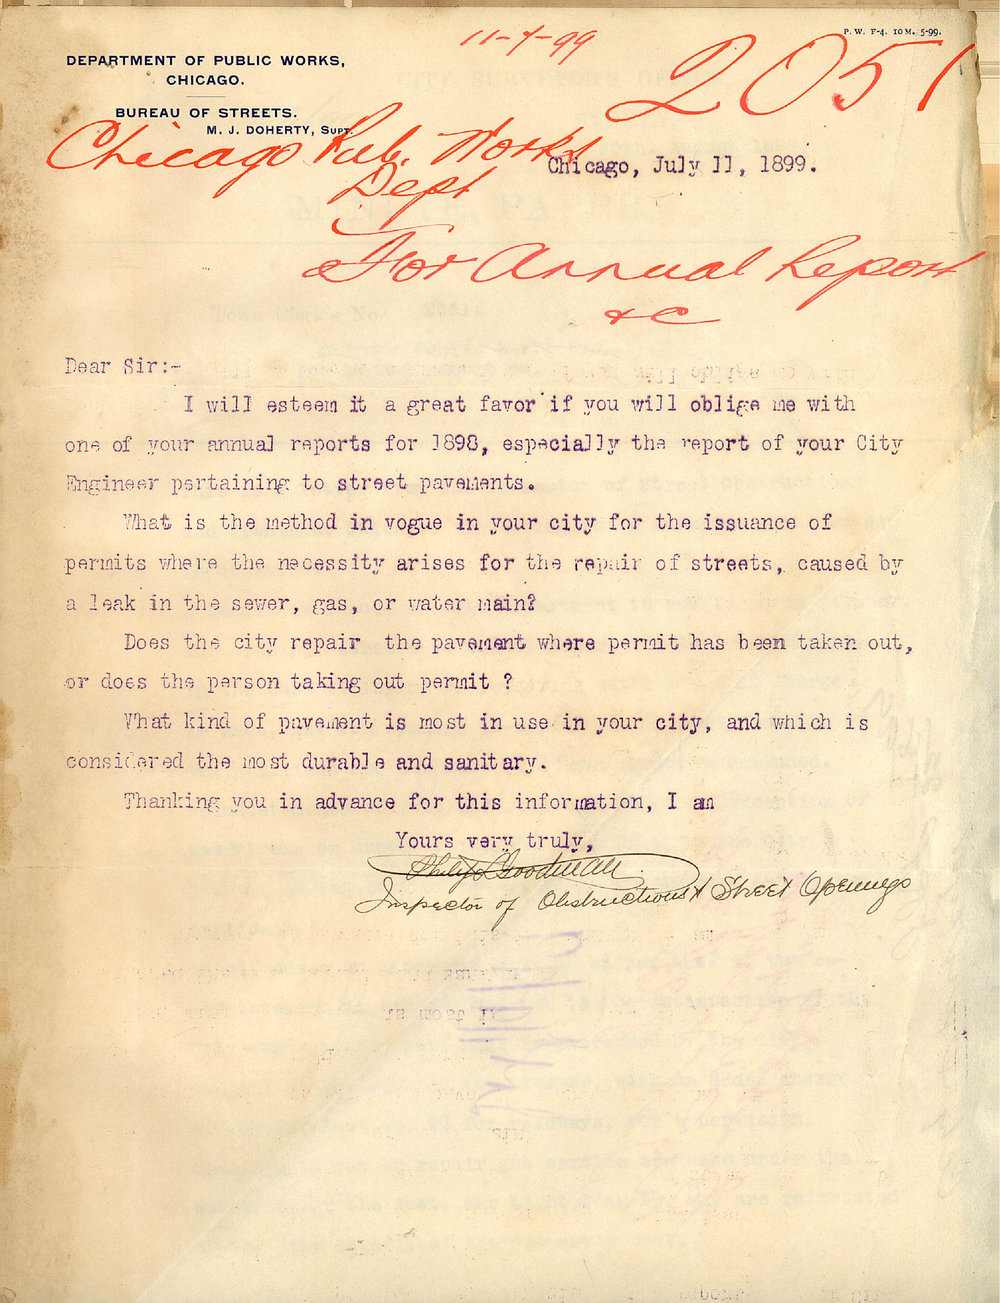 P. W. F-4. 10M. 5-99.
11-7-99
2051
DEPARTMENT OF PUBLIC WORKS,
CHICAGO.
BUREAU OF STREETS.
M. J. DOHERTY, SUPT.
Chicago Pub. Works
Dept
Chicago, July 11, 1899.
For Annual Report
&C
Dear Sir:-
I will esteem it a great favor if you will oblige me with
one of your annual reports for 1898, especially the report of your City
Engineer pertaining to street pavements.
What is the method in vogue in your city for the issuance of
permits where the necessity arises for the repair of streets, caused by
a leak in the sewer, gas, or water main?
Does the city repair the pavement where permit has been taken out,
or does the person taking out permit ?
What kind of pavement is most in use in your city, and which is
considered the most durable and sanitary.
Thanking you in advance for this information, I am
Yours very truly,
Goodman
Inspector of Obstructions & Street Openings